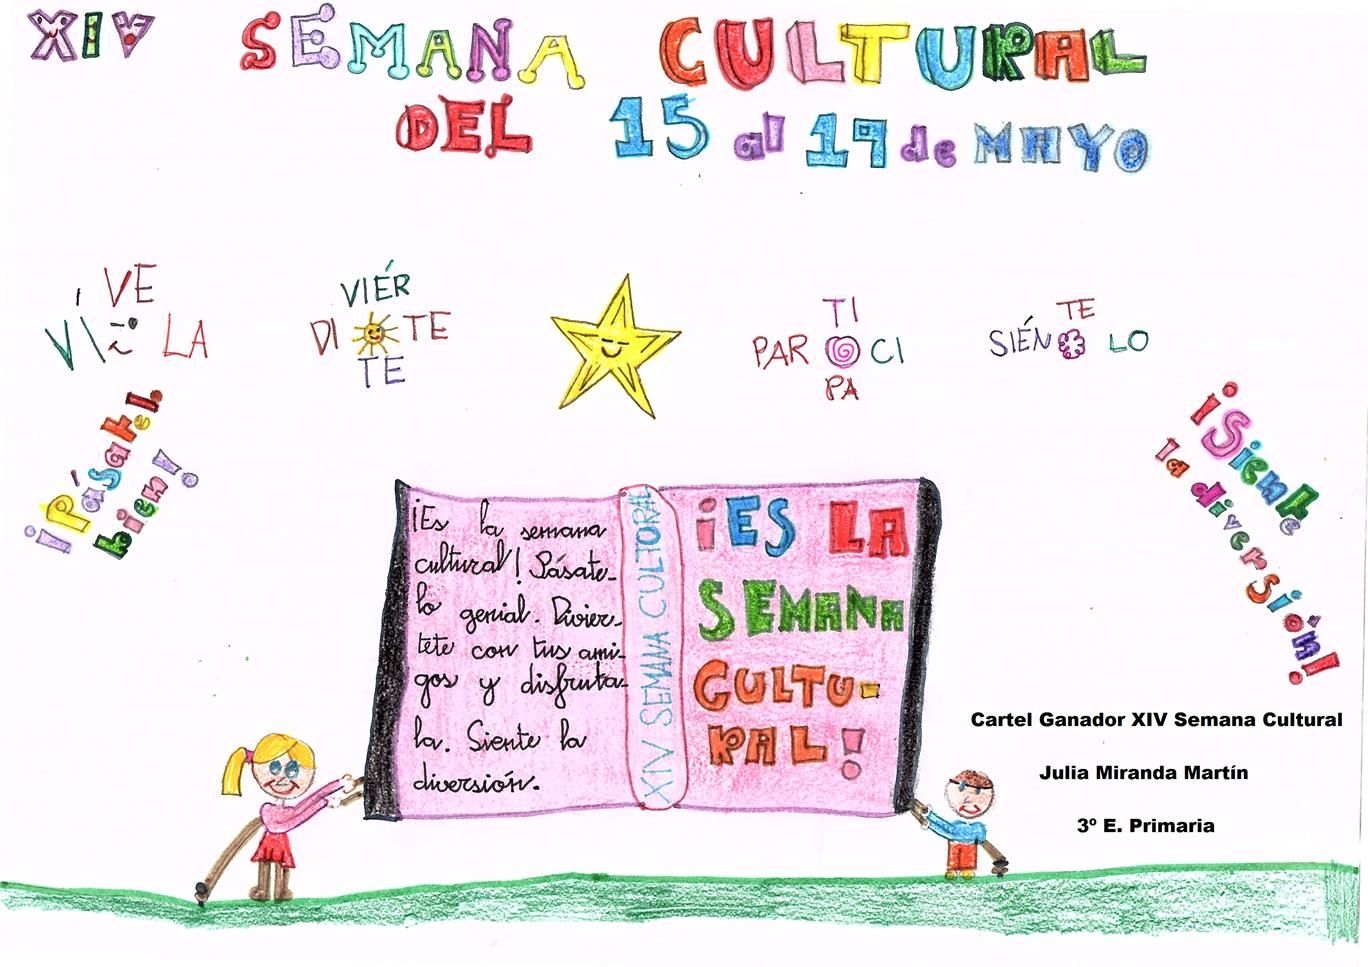 XIV SEMANA CULTURAL
DEL 15 al 19 de MAYO
VÍ VE LA
DI VIÉR TE TE
PAR TI CI PA
SIÉN TE LO
¡Pásatel.
bien!
¡Siente
la diversión!
¡Es la semana
cultural! Pásate-
lo genial. Divier-
tete con tus ami-
gos y disfruta-
la. Siente la
diversión.
XIV SEMANA CULTORAL
¡ES LA
SEMANA
CULTU-
RAL!
Cartel Ganador XIV Semana Cultural
Julia Miranda Martín
3º E. Primaria